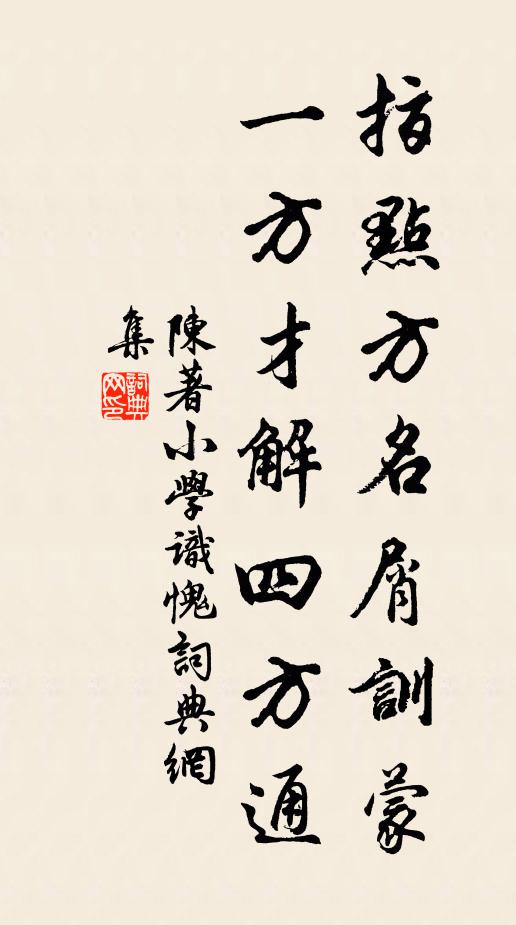 指點方名屑訓蒙
一方才解四方通
陳著小學識愧詞典網
集
詞典
网印